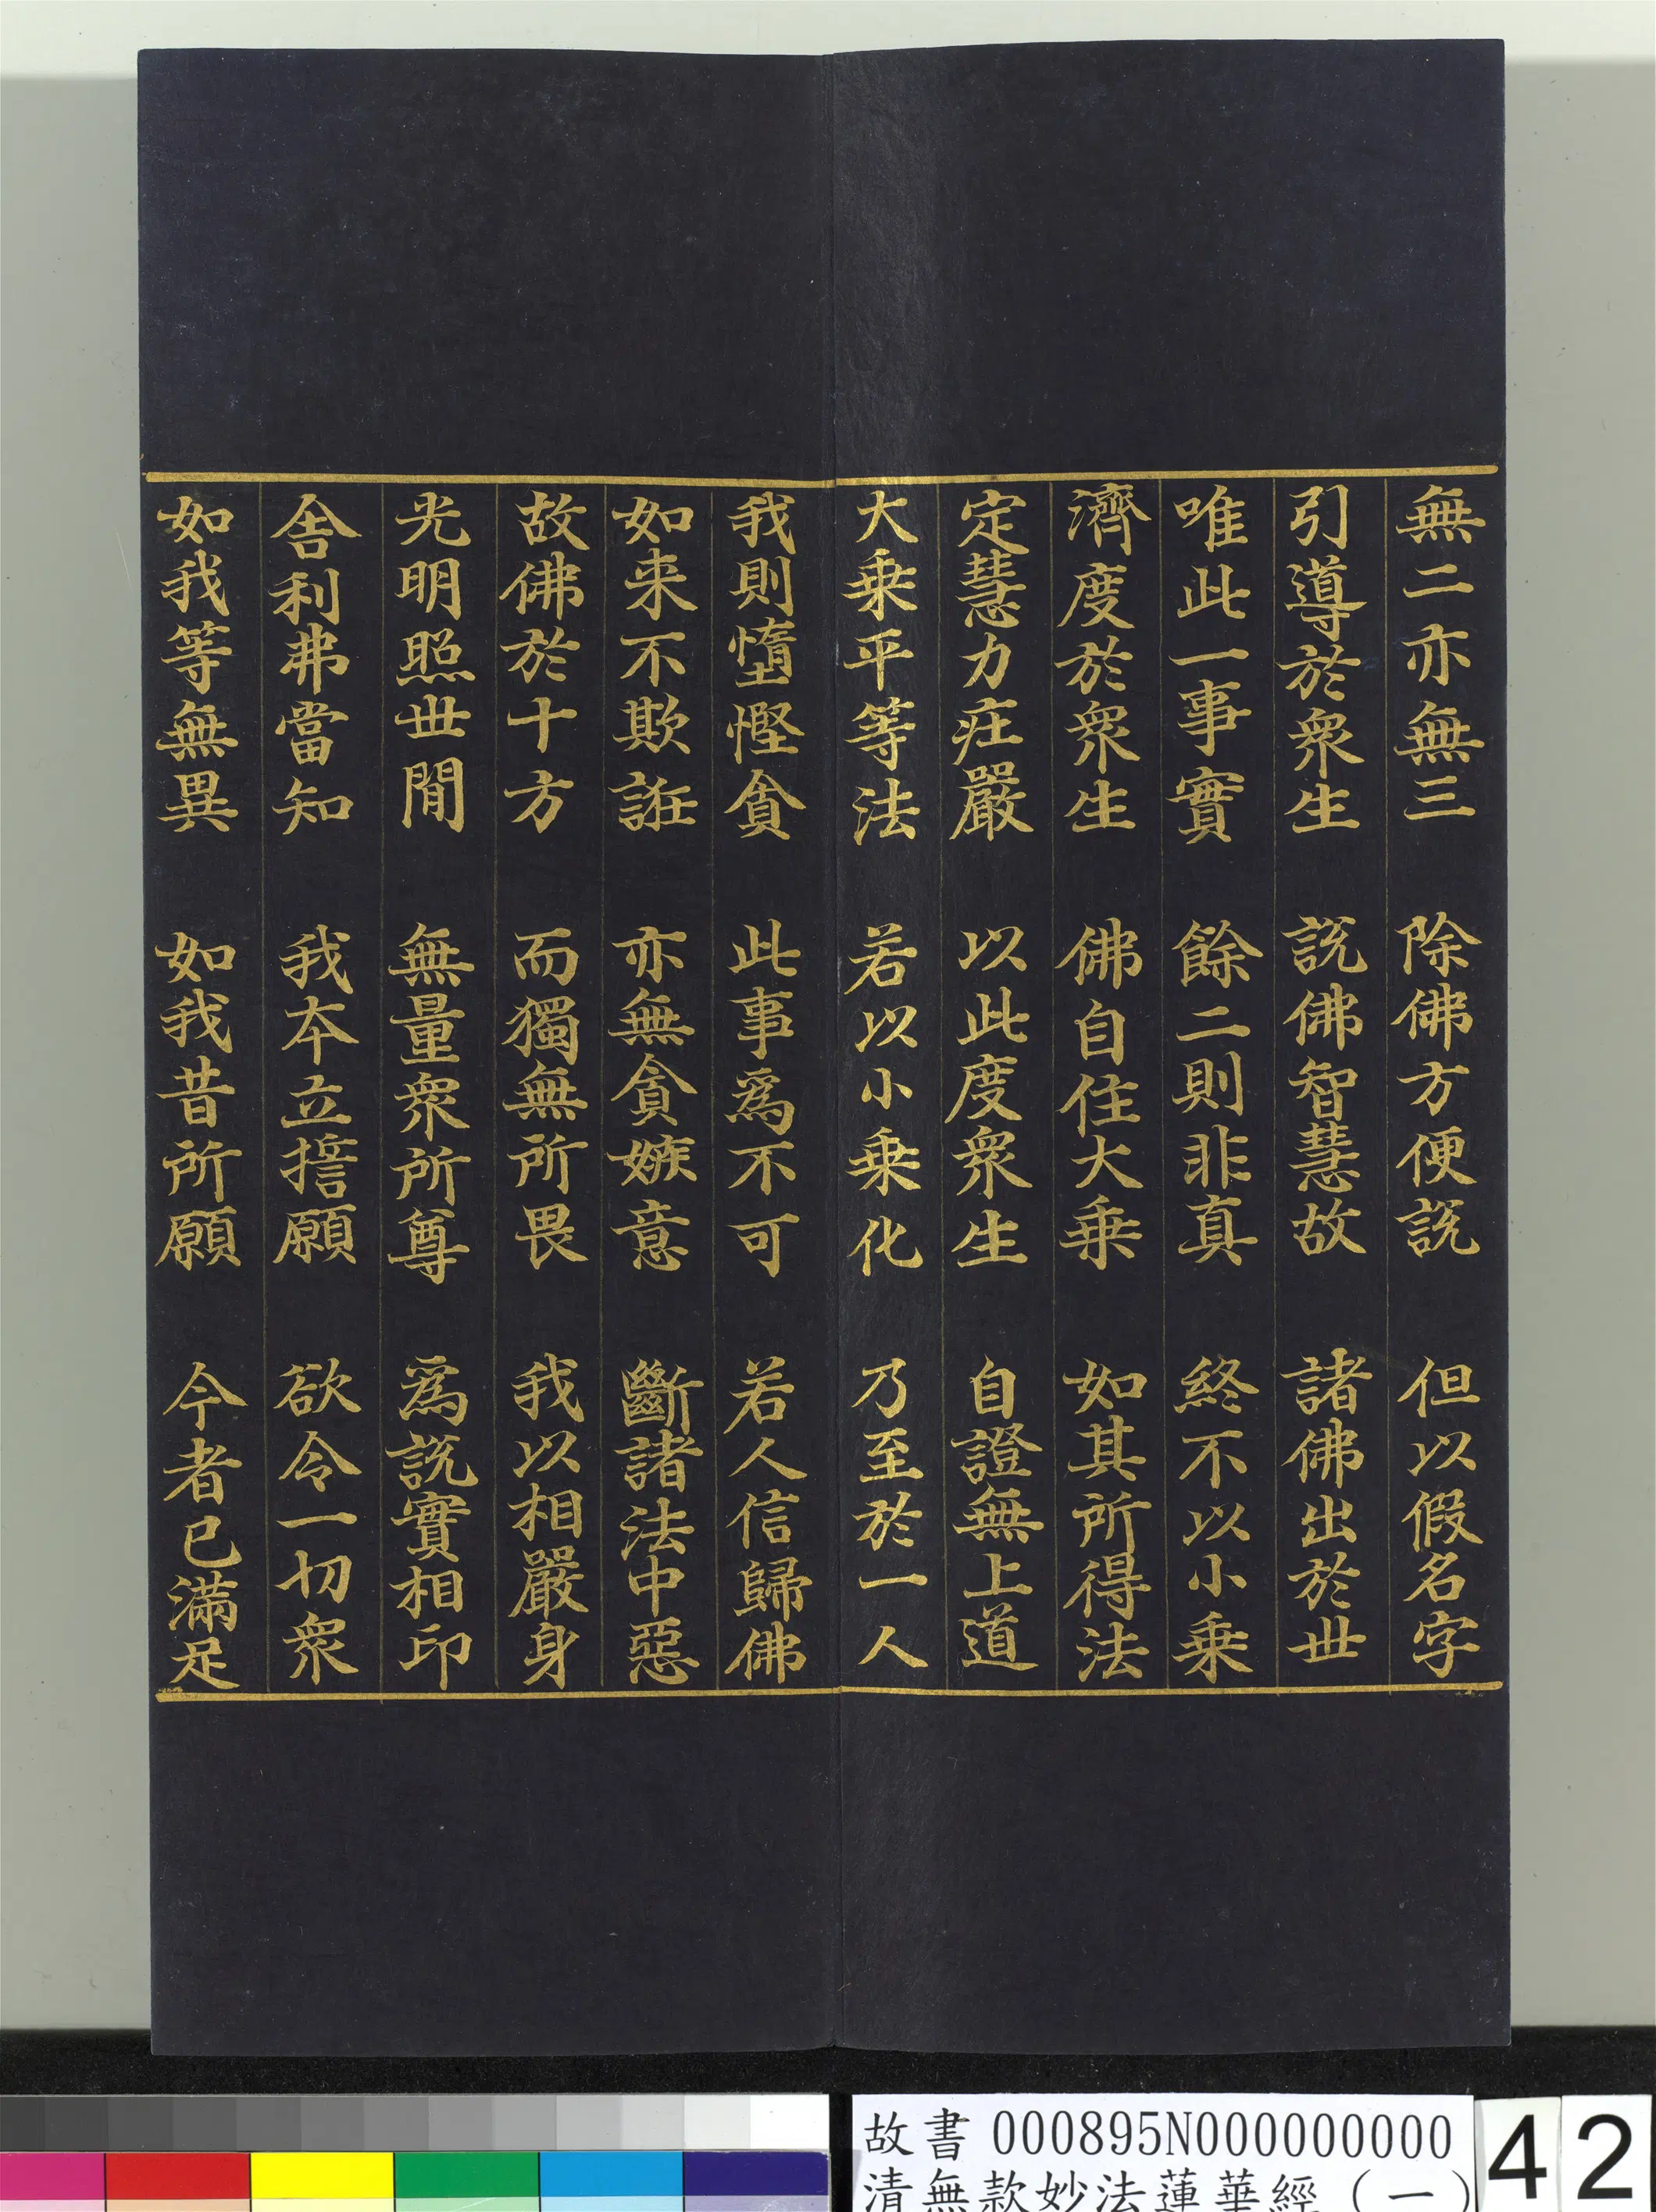 無二亦無三　除佛方便說　但以假名字
引導於衆生　說佛智慧故　諸佛出於世
唯此一事實　餘二則非真　終不以小乗
濟度於衆生　佛自住大乗　如其所得法
定慧力庄嚴　以此度衆生　自證無上道
大乗平等法　若以小乗化　乃至於一人
我則墮慳貪　此事為不可　若人信歸佛
如来不欺誑　亦無貪嫉意　斷諸法中惡
故佛於十方　而獨無所畏　我以相嚴身
光明照世間　無量衆所尊　為說實相印
舍利弗當知　我本立誓願　欲令一切衆
如我等無異　如我昔所願　今者已滿足
故書 000895N000000000
清無款妙法蓮華經（一）
42